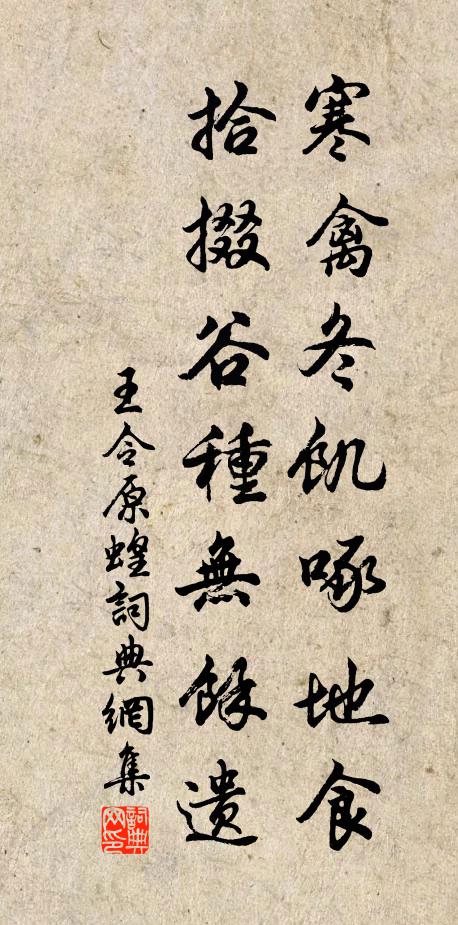 寒禽冬飢啄地食
拾掇谷種無餘遺
王令原蝗詞典網集
詞典網印